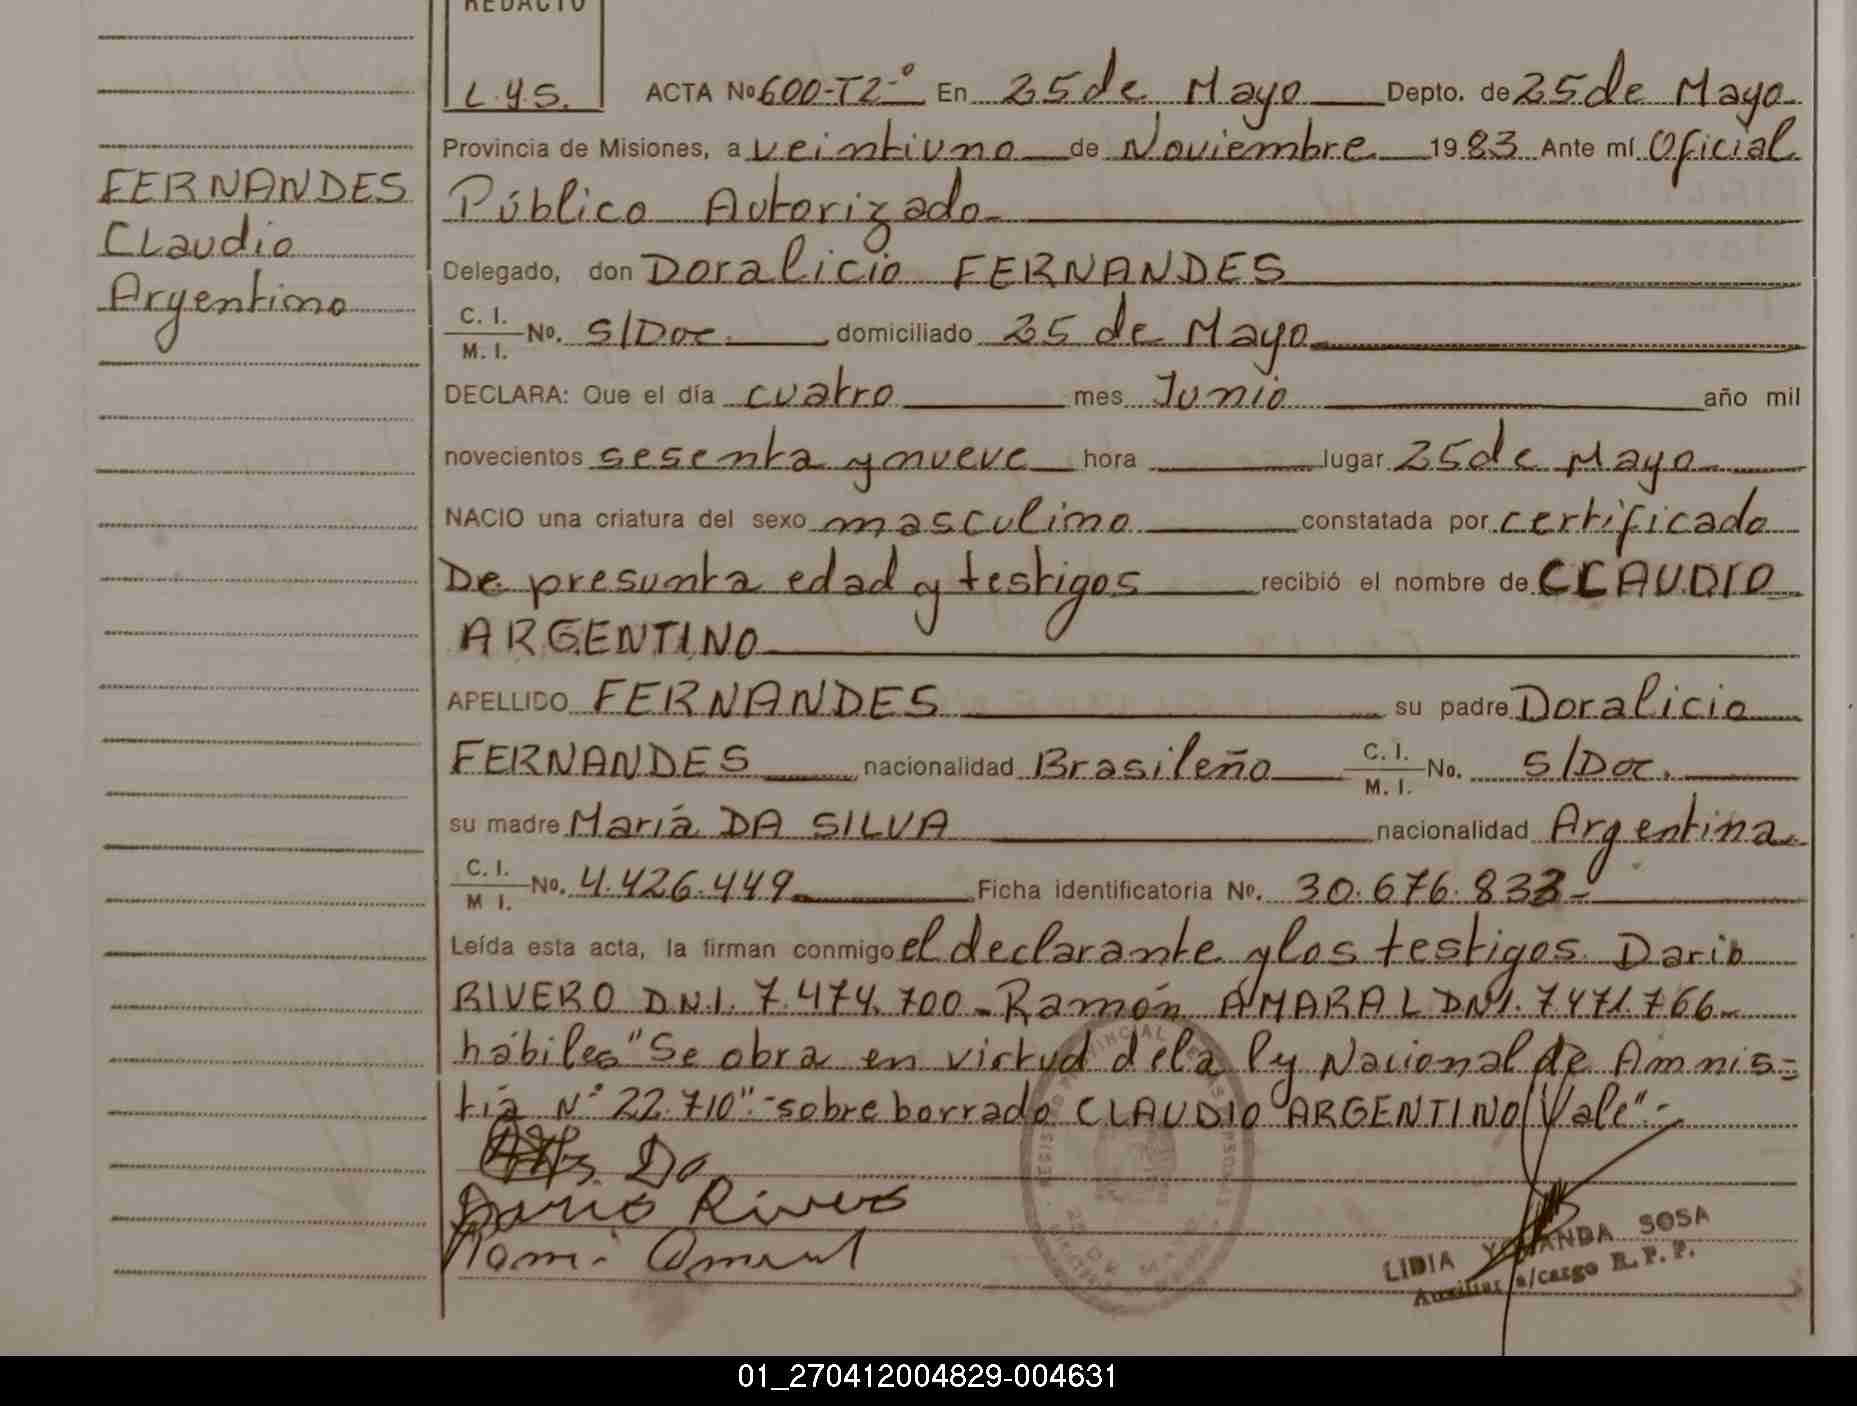 REDACTO
L.Y.S.
ACTA Nº 600-T2-º En 25 de Mayo Depto. de 25 de Mayo
Provincia de Misiones, a veintiuno de Noviembre 1983 Ante mí Oficial
Público Autorizado
Delegado, don Doralicio FERNANDES
C. I.
M. I. Nº. S/Doc. domiciliado 25 de Mayo
DECLARA: Que el día cuatro mes Junio año mil
novecientos sesenta y nueve hora lugar 25 de Mayo
NACIO una criatura del sexo masculino constatada por certificado
De presunta edad y testigos recibió el nombre de CLAUDIO
ARGENTINO
APELLIDO FERNANDES su padre Doralicio
FERNANDES nacionalidad Brasileño C. I. M. I. No. S/Doc.
su madre María DA SILVA nacionalidad Argentina
C. I.
M I. No. 4.426.449 Ficha identificatoria Nº. 30.676.833-
Leída esta acta, la firman conmigo el declarante y los testigos Dario
RIVERO D.N.I. 7.474.700 - Ramón AMARAL DNI. 7.471.766-
hábiles "Se obra en virtud de la ly Nacional de Amnis=
tia Nº 22.710"-sobre borrado CLAUDIO ARGENTINO Vale"-
Dario Rivero
LIDIA YOLANDA SOSA
Auxiliar a/cargo R. P. P.
FERNANDES
Claudio
Argentino
01_270412004829-004631